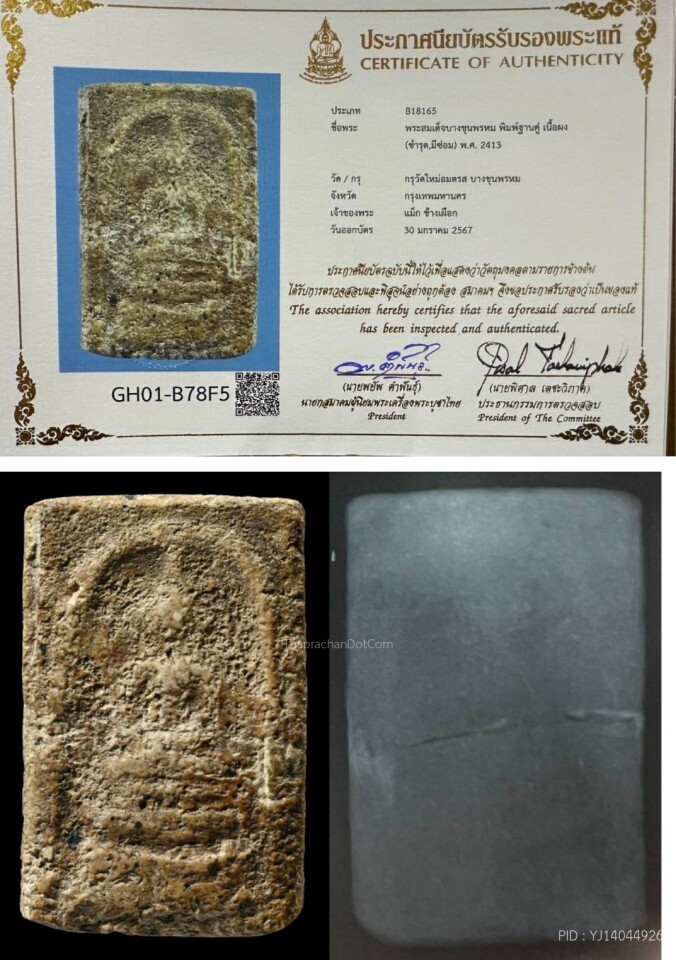 ประกาศนียบัตรรับรองพระแท้
CERTIFICATE OF AUTHENTICITY
ประเภท B18165
ชื่อพระ พระสมเด็จบางขุนพรหม พิมพ์ฐานคู่ เนื้อผง
(ชำรุด,มีซ่อม) พ.ศ. 2413
วัด / กรุ กรุวัดใหม่อมตรส บางขุนพรหม
จังหวัด กรุงเทพมหานคร
เจ้าของพระ แม็ก ช้างเผือก
วันออกบัตร 30 มกราคม 2567
ประกาศนียบัตรฉบับนี้ให้ไว้เพื่อแสดงว่าวัตถุมงคลตามรายการข้างต้น
ได้รับการตรวจสอบและพิสูจน์อย่างถูกต้อง สมาคมฯ จึงขอประกาศรับรองว่าเป็นของแท้
The association hereby certifies that the aforesaid sacred article
has been inspected and authenticated.
GH01-B78F5
(นายพยัพ คำพันธุ์)
นายกสมาคมผู้นิยมพระเครื่องพระบูชาไทย
President
(นายพิศาล เตชะวิภาค)
ประธานกรรมการตรวจสอบ
President of The Committee
ThaprachanDotCom
PID : YJ14044926